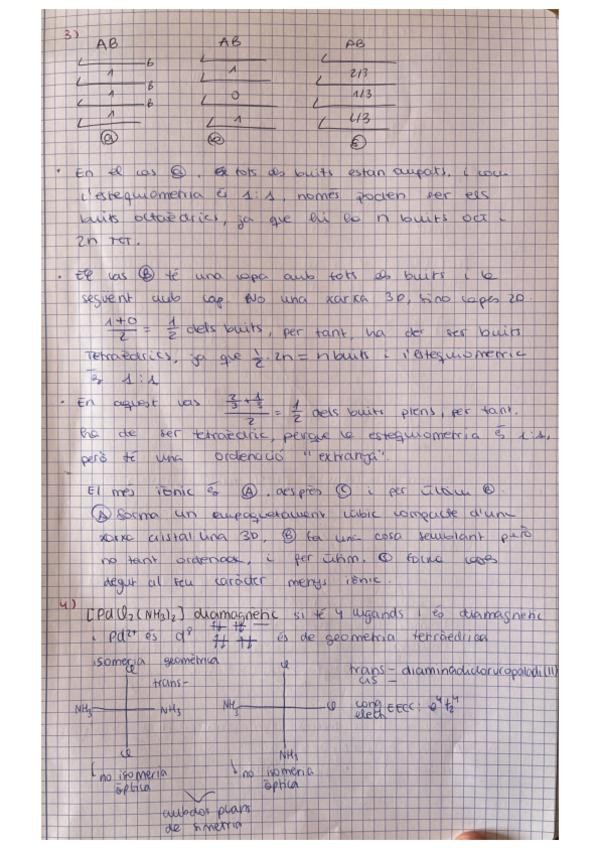 3)
AB AB AB
b
1 1 2/3
b
1 0 1/3
b
1 1 2/3
a
· En el cas tots els buits estan ocupats, i com
l'estequiometria és 1:1, només poden ser els
buits octaèdrics, ja que hi ha n buits oct i
2n TET.
· El cas B té una capa amb tots els buits i la
següent amb cap. No una xarxa 3D, sino capes 2D.
1+0/2 = 1/2 dels buits, per tant, ha de ser buits
Tetraèdrics, ja que 1/2 · 2n = n buits i l'estequiometria
és 1:1
· En aquest cas (2/3 + 1/3)/2 = 1/2 dels buits plens, per tant,
ha de ser tetraèdric, perquè la estequiometria és 1:1,
però té una ordenació "extranya".
El més iònic és A, després C i per últim B.
A forma un empaquetament cúbic compacte d'una
xarxa cristalina 3D, B fa una cosa semblant però
no tant ordenada, i per últim, C forma capes
degut al seu caràcter menys iònic.
4)
[PdCl2(NH3)2] diamagnetic si té 4 ligands i és diamagnetic
i Pd2+ és d8 és de geometria tetraèdrica
isomeria geomètrica
Cl Cl
trans- trans- diaminadicloruropaladi(II)
cis -
NH3 NH3 NH3 Cl
config elect EECC: e4 t2 4
Cl NH3
no isomeria òptica no isomeria òptica
ambdos plans
de simetria